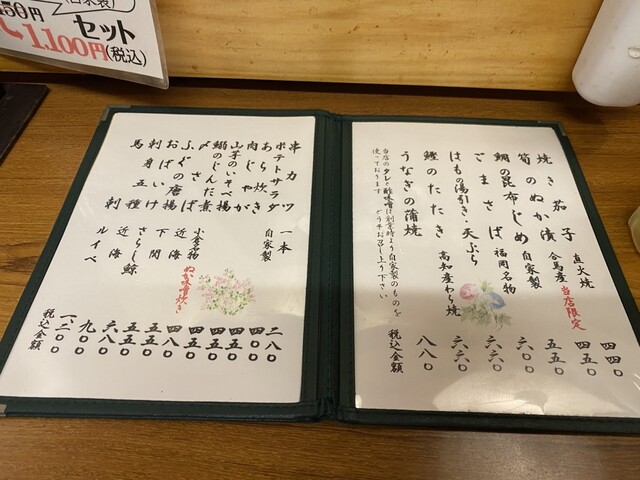 50円
(自家製)
セット
1,100円(税込)
焼き茄子 直火焼 四四〇
筍のぬか漬 合馬産 当店限定 四五〇
鯛の昆布じめ 自家製 五五〇
ごまさば 福岡名物 六〇〇
はもの湯引き・天ぷら 六六〇
鰹のたたき 高知産わら焼 六六〇
うなぎの蒲焼 八八〇
当店のタレと酢味噌は創業時より自家製のものを
使っております どうぞお召し上り下さい
税込金額
串カツ 一本 二八〇
ポテトサラダ 自家製 四〇〇
あら炊き 四五〇
肉じゃが 四五〇
山芋のいそべ揚 四五〇
鰯のじんだ煮 小倉名物 ぬか味噌炊き
〆さば 近海 五五〇
ふぐの唐揚 下関 五五〇
おばいけ さらし鯨 六八〇
刺身五種 近海 九〇〇
馬刺 ルイベ 一、二〇〇
税込金額